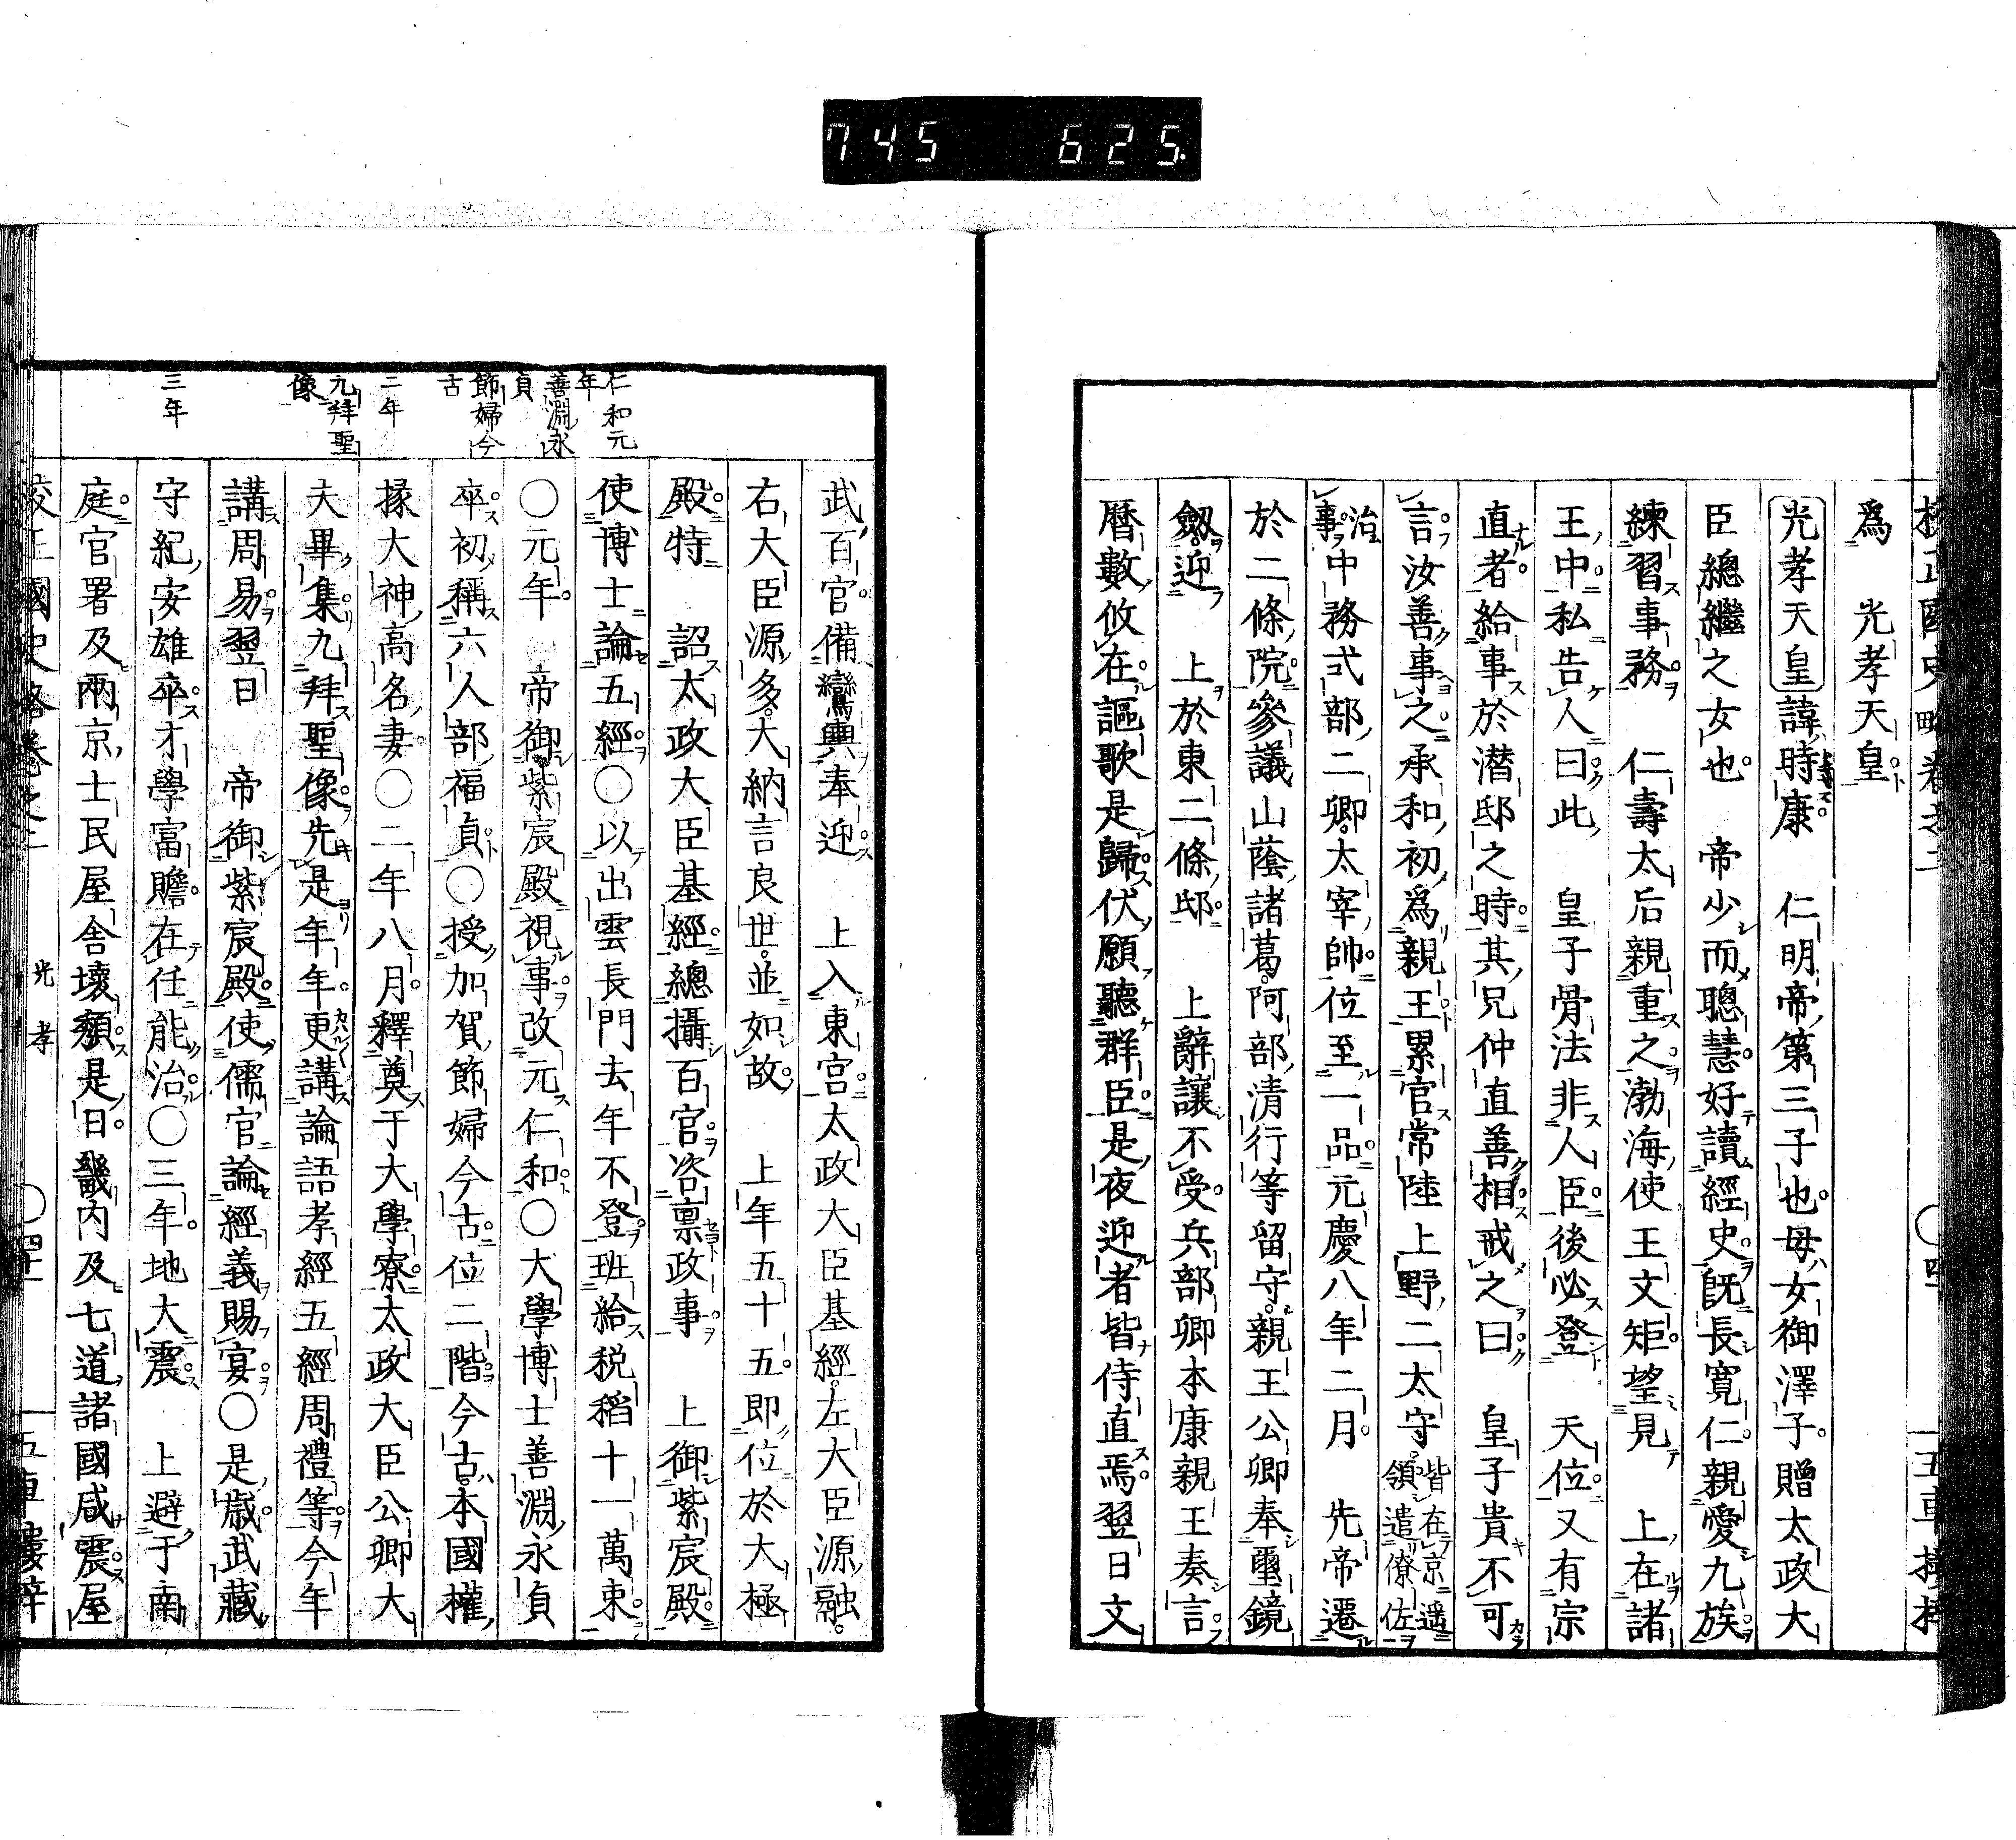 745 625.
爲 光孝天皇
光孝天皇諱時康 仁明帝第三子也母女御澤子贈太政大
臣總繼之女也 帝少而聰慧好讀經史既長寬仁親愛九族
練習事務 仁壽太后親重之渤海使王文矩望見 上在諸
王中私告人曰此 皇子骨法非人臣後必登 天位又有宗
直者給事於潜邸之時其兄仲直善相戒之曰 皇子貴不可
言汝善事之承和初爲親王累官常陸上野二太守皆在京遥領遣僚佐
治事中務式部二卿太宰帥位至一品元慶八年二月 先帝遷
於二條院參議山蔭諸葛阿部清行等留守親王公卿奉璽鏡
劔迎 上於東二條邸 上辭讓不受兵部卿本康親王奏言
曆數攸在謳歌是歸伏願聽群臣是夜迎者皆侍直焉翌日文
武百官備鸞輿奉迎 上入東宮太政大臣基經左大臣源融
右大臣源多大納言良世並如故 上年五十五即位於大極
殿特 詔太政大臣基經總攝百官咨禀政事 上御紫宸殿
使博士論五經○以出雲長門去年不登班給税稻十一萬束
○元年 帝御紫宸殿視事改元仁和○大學博士善淵永貞
卒初稱六人部福貞○授加賀節婦今古位二階今古本國權
掾大神高名妻○二年八月釋奠于大學寮太政大臣公卿大
夫畢集九拜聖像先是年年更講論語孝經五經周禮等今年
講周易翌日 帝御紫宸殿使儒官論經義賜宴○是歳武藏
守紀安雄卒才學富贍在任能治○三年地大震 上避于南
庭官署及兩京士民屋舎壞頽是日畿内及七道諸國咸震屋
仁和元年
善淵永貞
節婦今古
二年
九拜聖像
三年
光孝